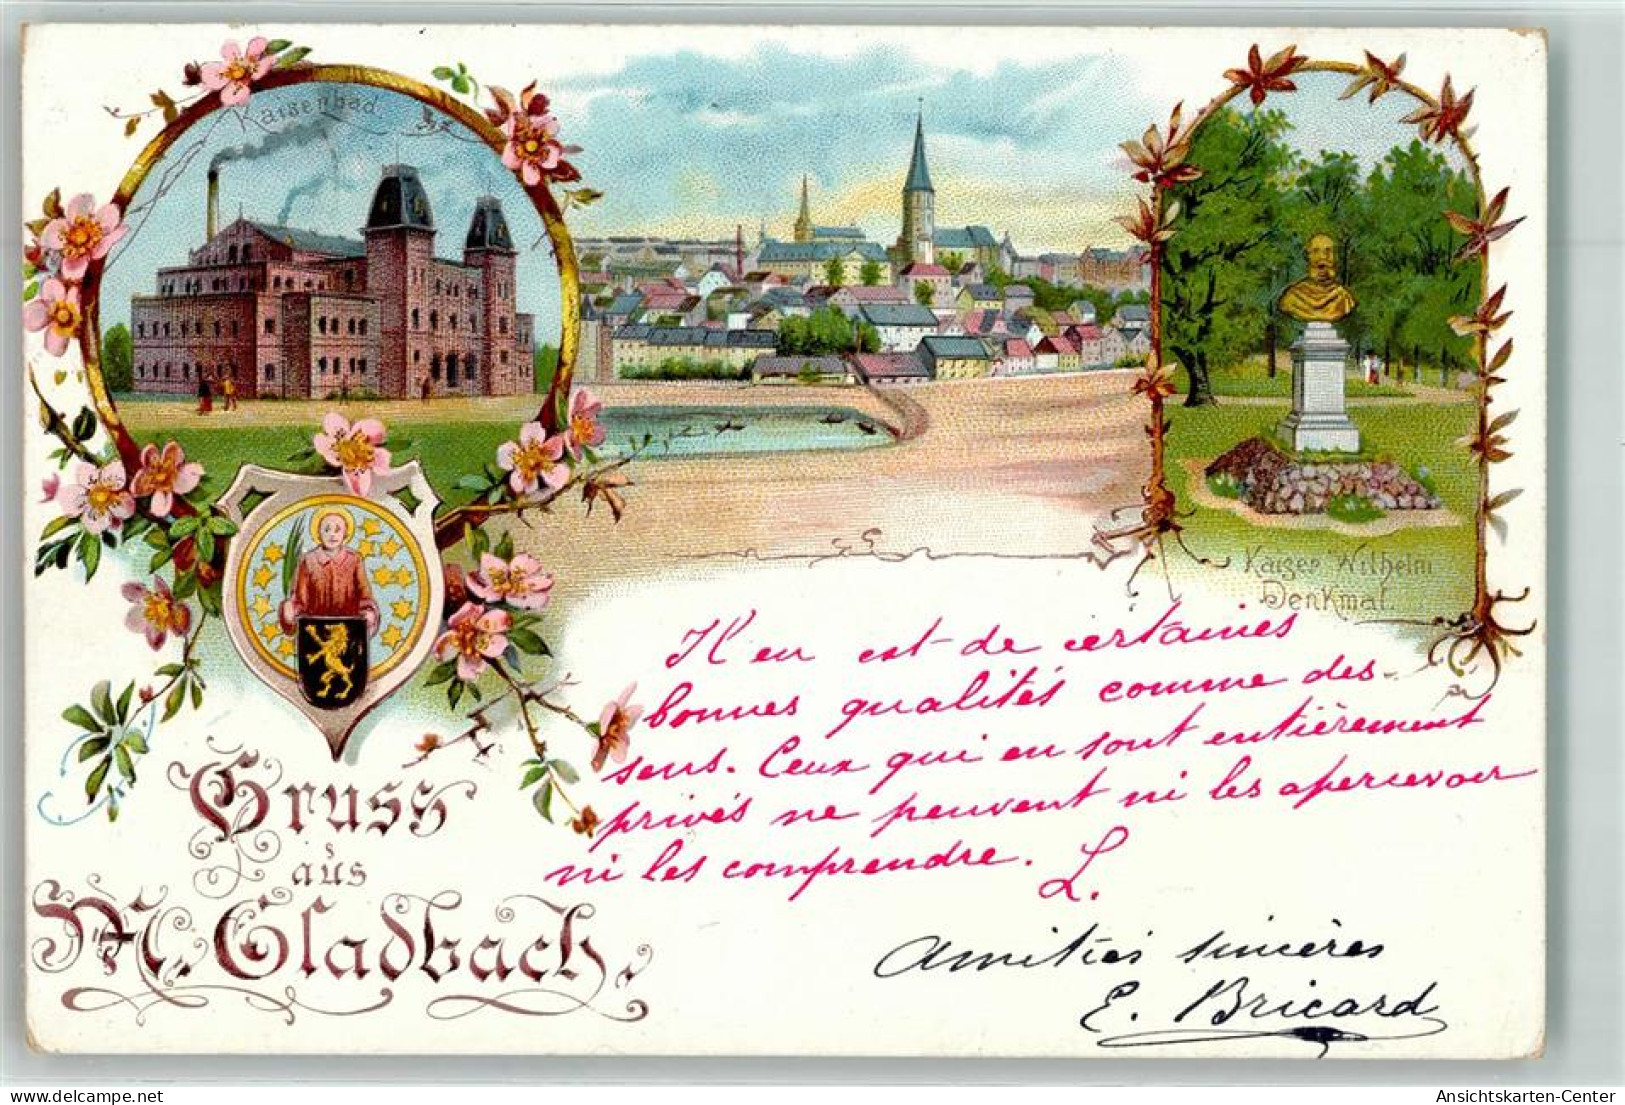 Kaiserbad.
Kaiser Wilhelm
Denkmal.
Gruss
aus
M. Gladbach.
Il en est de certaines
bonnes qualités comme des
sens. Ceux qui en sont entièrement
privés ne peuvent ni les apercevoir
ni les comprendre. L.
Amitiés sincères
E. Bricard
AnsichtsKarten-Center
www.delcampe.net